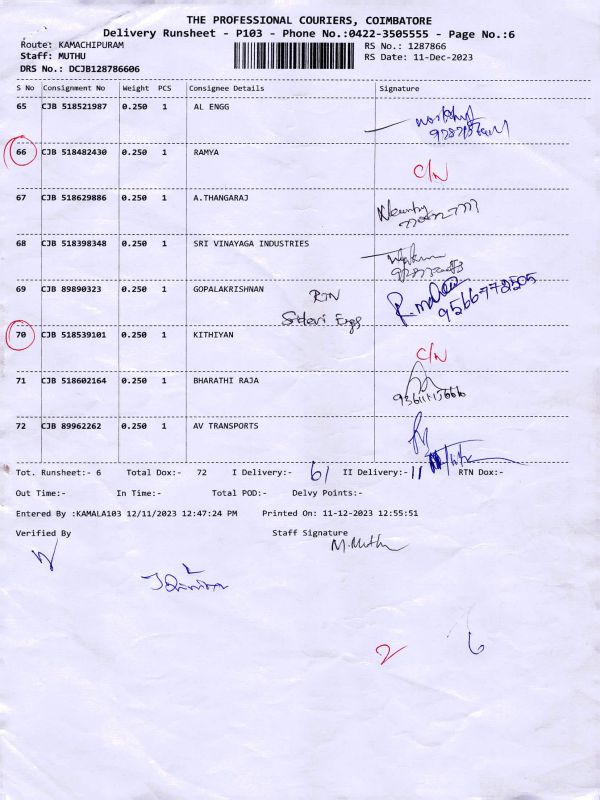 THE PROFESSIONAL COURIERS, COIMBATORE
Delivery Runsheet - P103 - Phone No.:0422-3505555 - Page No.:6
Route: KAMACHIPURAM RS No.: 1287866
Staff: MUTHU RS Date: 11-Dec-2023
DRS No.: DCJB128786606
S No Consignment No Weight PCS Consignee Details Signature
65 CJB 518521987 0.250 1 AL ENGG
66 CJB 518482430 0.250 1 RAMYA C/N
67 CJB 518629886 0.250 1 A.THANGARAJ
68 CJB 518398348 0.250 1 SRI VINAYAGA INDUSTRIES
69 CJB 89890323 0.250 1 GOPALAKRISHNAN
9566778505
70 CJB 518539101 0.250 1 KITHIYAN C/N
71 CJB 518602164 0.250 1 BHARATHI RAJA
72 CJB 89962262 0.250 1 AV TRANSPORTS
Tot. Runsheet:- 6 Total Dox:- 72 I Delivery:- 61 II Delivery:- 11 RTN Dox:-
Out Time:- In Time:- Total POD:- Delvy Points:-
Entered By :KAMALA103 12/11/2023 12:47:24 PM Printed On: 11-12-2023 12:55:51
Verified By Staff Signature
M.Muthu
2 6